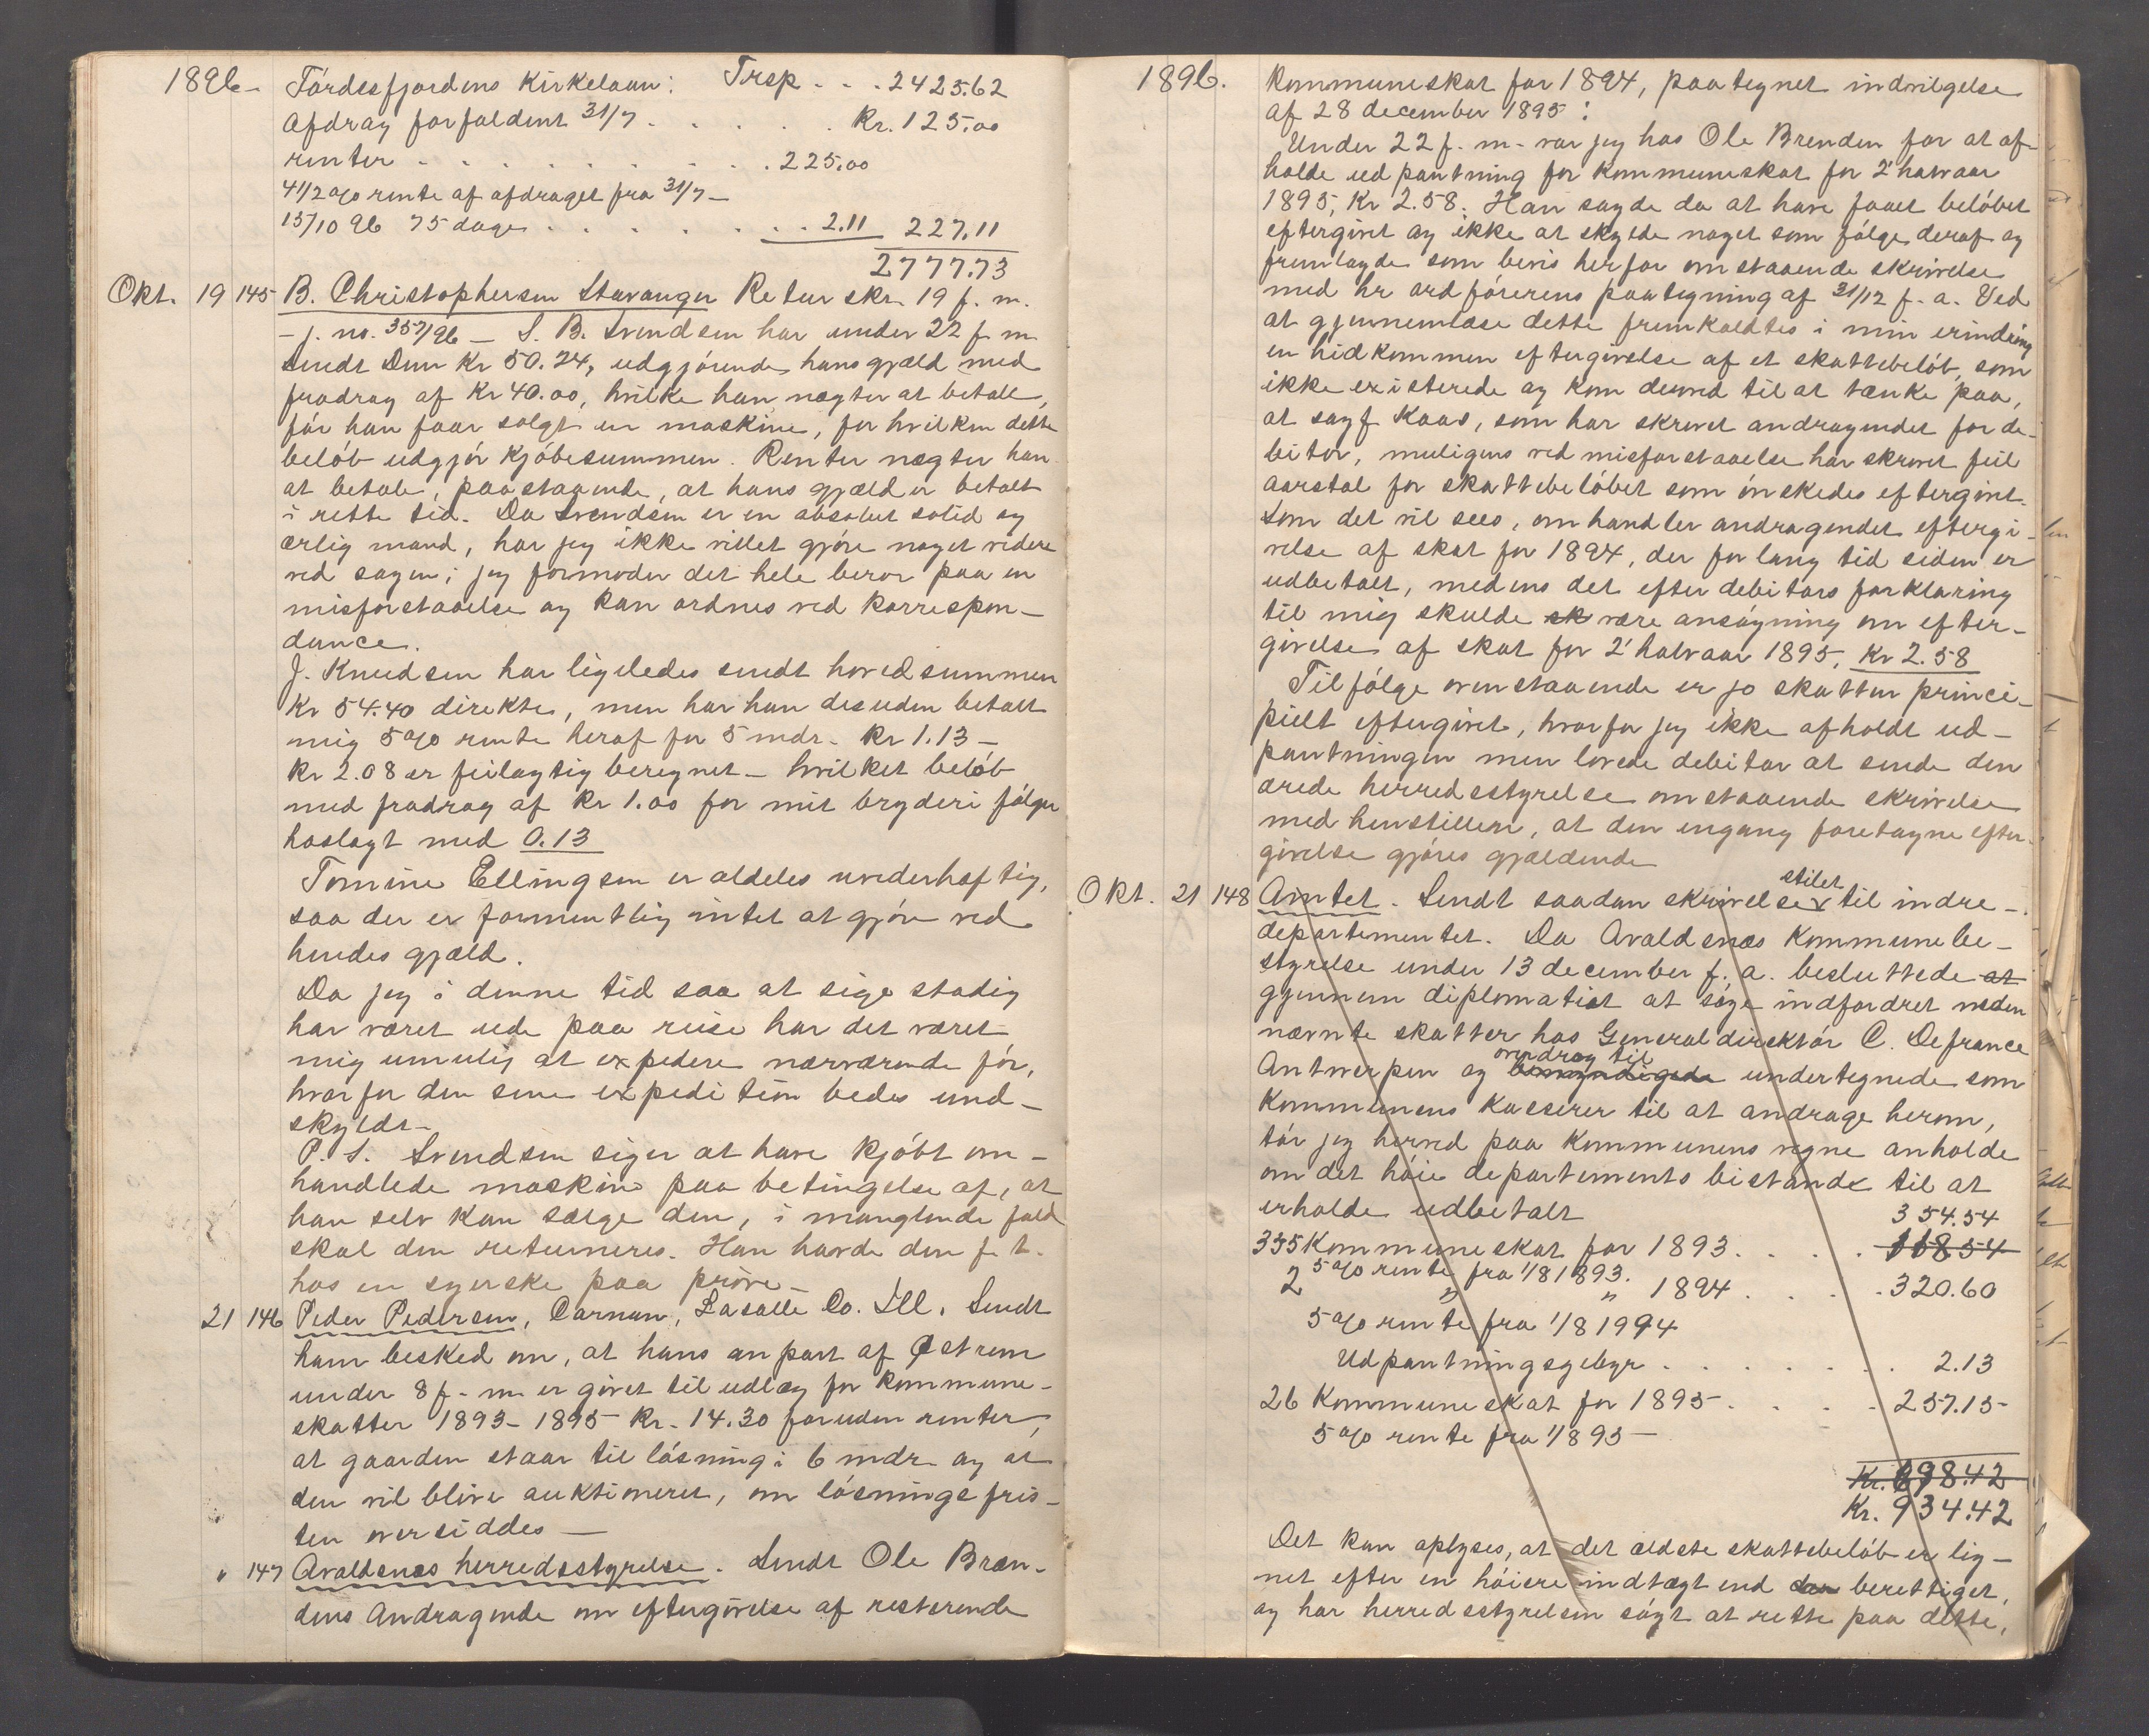 1896- Førdesfjordens Kirkelaan: Trsp . . . 2425.62
Afdrag forfaldent 31/7 . . . . . . Kr. 125.00
renter . . . . . . . . . . 225.00
4 1/2 % rente af afdraget fra 31/7 –
15/10 96 75 dage . . . . . . . . 2.11 227.11
2777.73
Okt. 19 145 B. Christophersen Stavanger Retur skr. 19 f. m.
– j. no. 357/96 – S. B. Svendsen har under 22 f. m.
sendt Dem Kr 50.24, udgjørende hans gjæld med
fradrag af Kr 40.00, hvilke han nægter at betale,
før han faar solgt en maskine, for hvilken dette
beløb udgjør kjøbesummen. Renter nægter han
at betale, paastaaende, at hans gjæld er betalt
i rette tid. Da Svendsen er en absolut solid og
ærlig mand, har jeg ikke villet gjøre noget videre
ved sagen; jeg formoder det hele beror paa en
misforstaaelse og kan ordnes ved korrespon–
dance.
J. Knudsen har ligeledes sendt hovedsummen
Kr 54.40 direkte, men har han desuden betalt
mig 5% rente heraf for 5 mdr. Kr 1.13 –
Kr 2.08 er feilagtig beregnet – hvilket beløb
med fradrag af Kr 1.00 for mit bryderi følger
hoslagt med 0.13
Tomine Ellingsen er aldeles uvederhæftig,
saa der er formentlig intet at gjøre ved
hendes gjæld.
Da jeg i denne tid saa at sige stadig
har været ude paa reise har det været
mig umulig at expedere nærværende før,
hvorfor den sene expedition bedes und–
skyldt–
P. S. Svendsen siger at have kjøbt om–
handlede maskine paa betingelse af, at
han selv kan sælge den, i manglende fald
skal den returneres. Han havde den f. t.
hos en syerske paa prøve–
21 146 Peder Pedersen, Carnan, Lasalle Co. Ill. Sendt
ham besked om, at hans anpart af Østrem
under 8 f. m. er givet til udlæg for kommune–
skatter 1893–1895 Kr. 14.30 foruden renter,
at gaarden staar til løsning i 6 mdr. og at
den vil blive auktioneret, om løsningsfris–
ten oversiddes –
" 147 Avaldsnes herredsstyrelse. Sendt Ole Bræn–
dens Andragende om eftergivelse af resterende
1896. Kommuneskat for 1894, paategnet indvilgelse
af 28 december 1895:
Under 22 f. m. var jeg hos Ole Brenden for at af–
holde udpantning for Kommuneskat for 2' halvaar
1895, Kr 2.58. Han sagde da at have faaet beløbet
eftergivet og ikke at skylde noget som følge deraf og
fremlagde som bevis herfor omstaaende skrivelse
med hr ordførerens paategning af 31/12 f. a. Ved
at gjennemlæse dette fremkaldtes i min erindring
en hidkommen eftergivelse af et skattebeløb, som
ikke existerede og kom derved til at tænke paa,
at sagf Kaas, som har skrevet andragendet for de–
bitor, muligens ved misforstaaelse har skrevet feil
aarstal for skattebeløbet som ønskedes eftergivet.
Som det vil sees, omhandler andragendet eftergi–
velse af skat for 1894, der for lang tid siden er
udbetalt, medens det efter debitors forklaring
til mig skulde sk være ansøgning om efter–
givelse af skat for 2' halvaar 1895, Kr 2.58
Tilfølge ovenstaaende er jo skatten princi–
pielt eftergivet, hvorfor jeg ikke afholdt ud–
pantningen men lovede debitor at sende den
ærede herredsstyrelse omstaaende skrivelse
med henstillen, at den engang foretagne efter–
givelse gjøres gjældende
stilet
Okt. 21 148 Amtet. Sendt saadan skrivelse til indre–
departementet. Da Avaldsnæs Kommunebe–
styrelse under 13 december f. a. besluttede at
gjennem diplomatiet at søge indfordret neden
nævnte skatter hos Generaldirektør C. Defrance
overdrog til
Antwerpen og bemyndigede undertegnede som
Kommunens Kasserer til at andrage herom,
tør jeg herved paa Kommunens vegne anholde
om det høie departements bistand til at
erholde udbetalt 354.54
335 Kommuneskat for 1893 . . . . 118.54
5% rente fra 1/8 1893.
2 " " 1894 . . . . 320.60
5% rente fra 1/8 1994
Udpantningsgebyr . . . . . . . 2.13
26 Kommuneskat for 1895 . . . . 257.15–
5% rente fra 1/8 95 –
Kr. 698.42
Kr. 934.42
Det kan oplyses, at det ældste skattebeløb er lig–
net efter en høiere indtægt end den berettiget,
og har herredsstyrelsen søgt at rette paa dette,